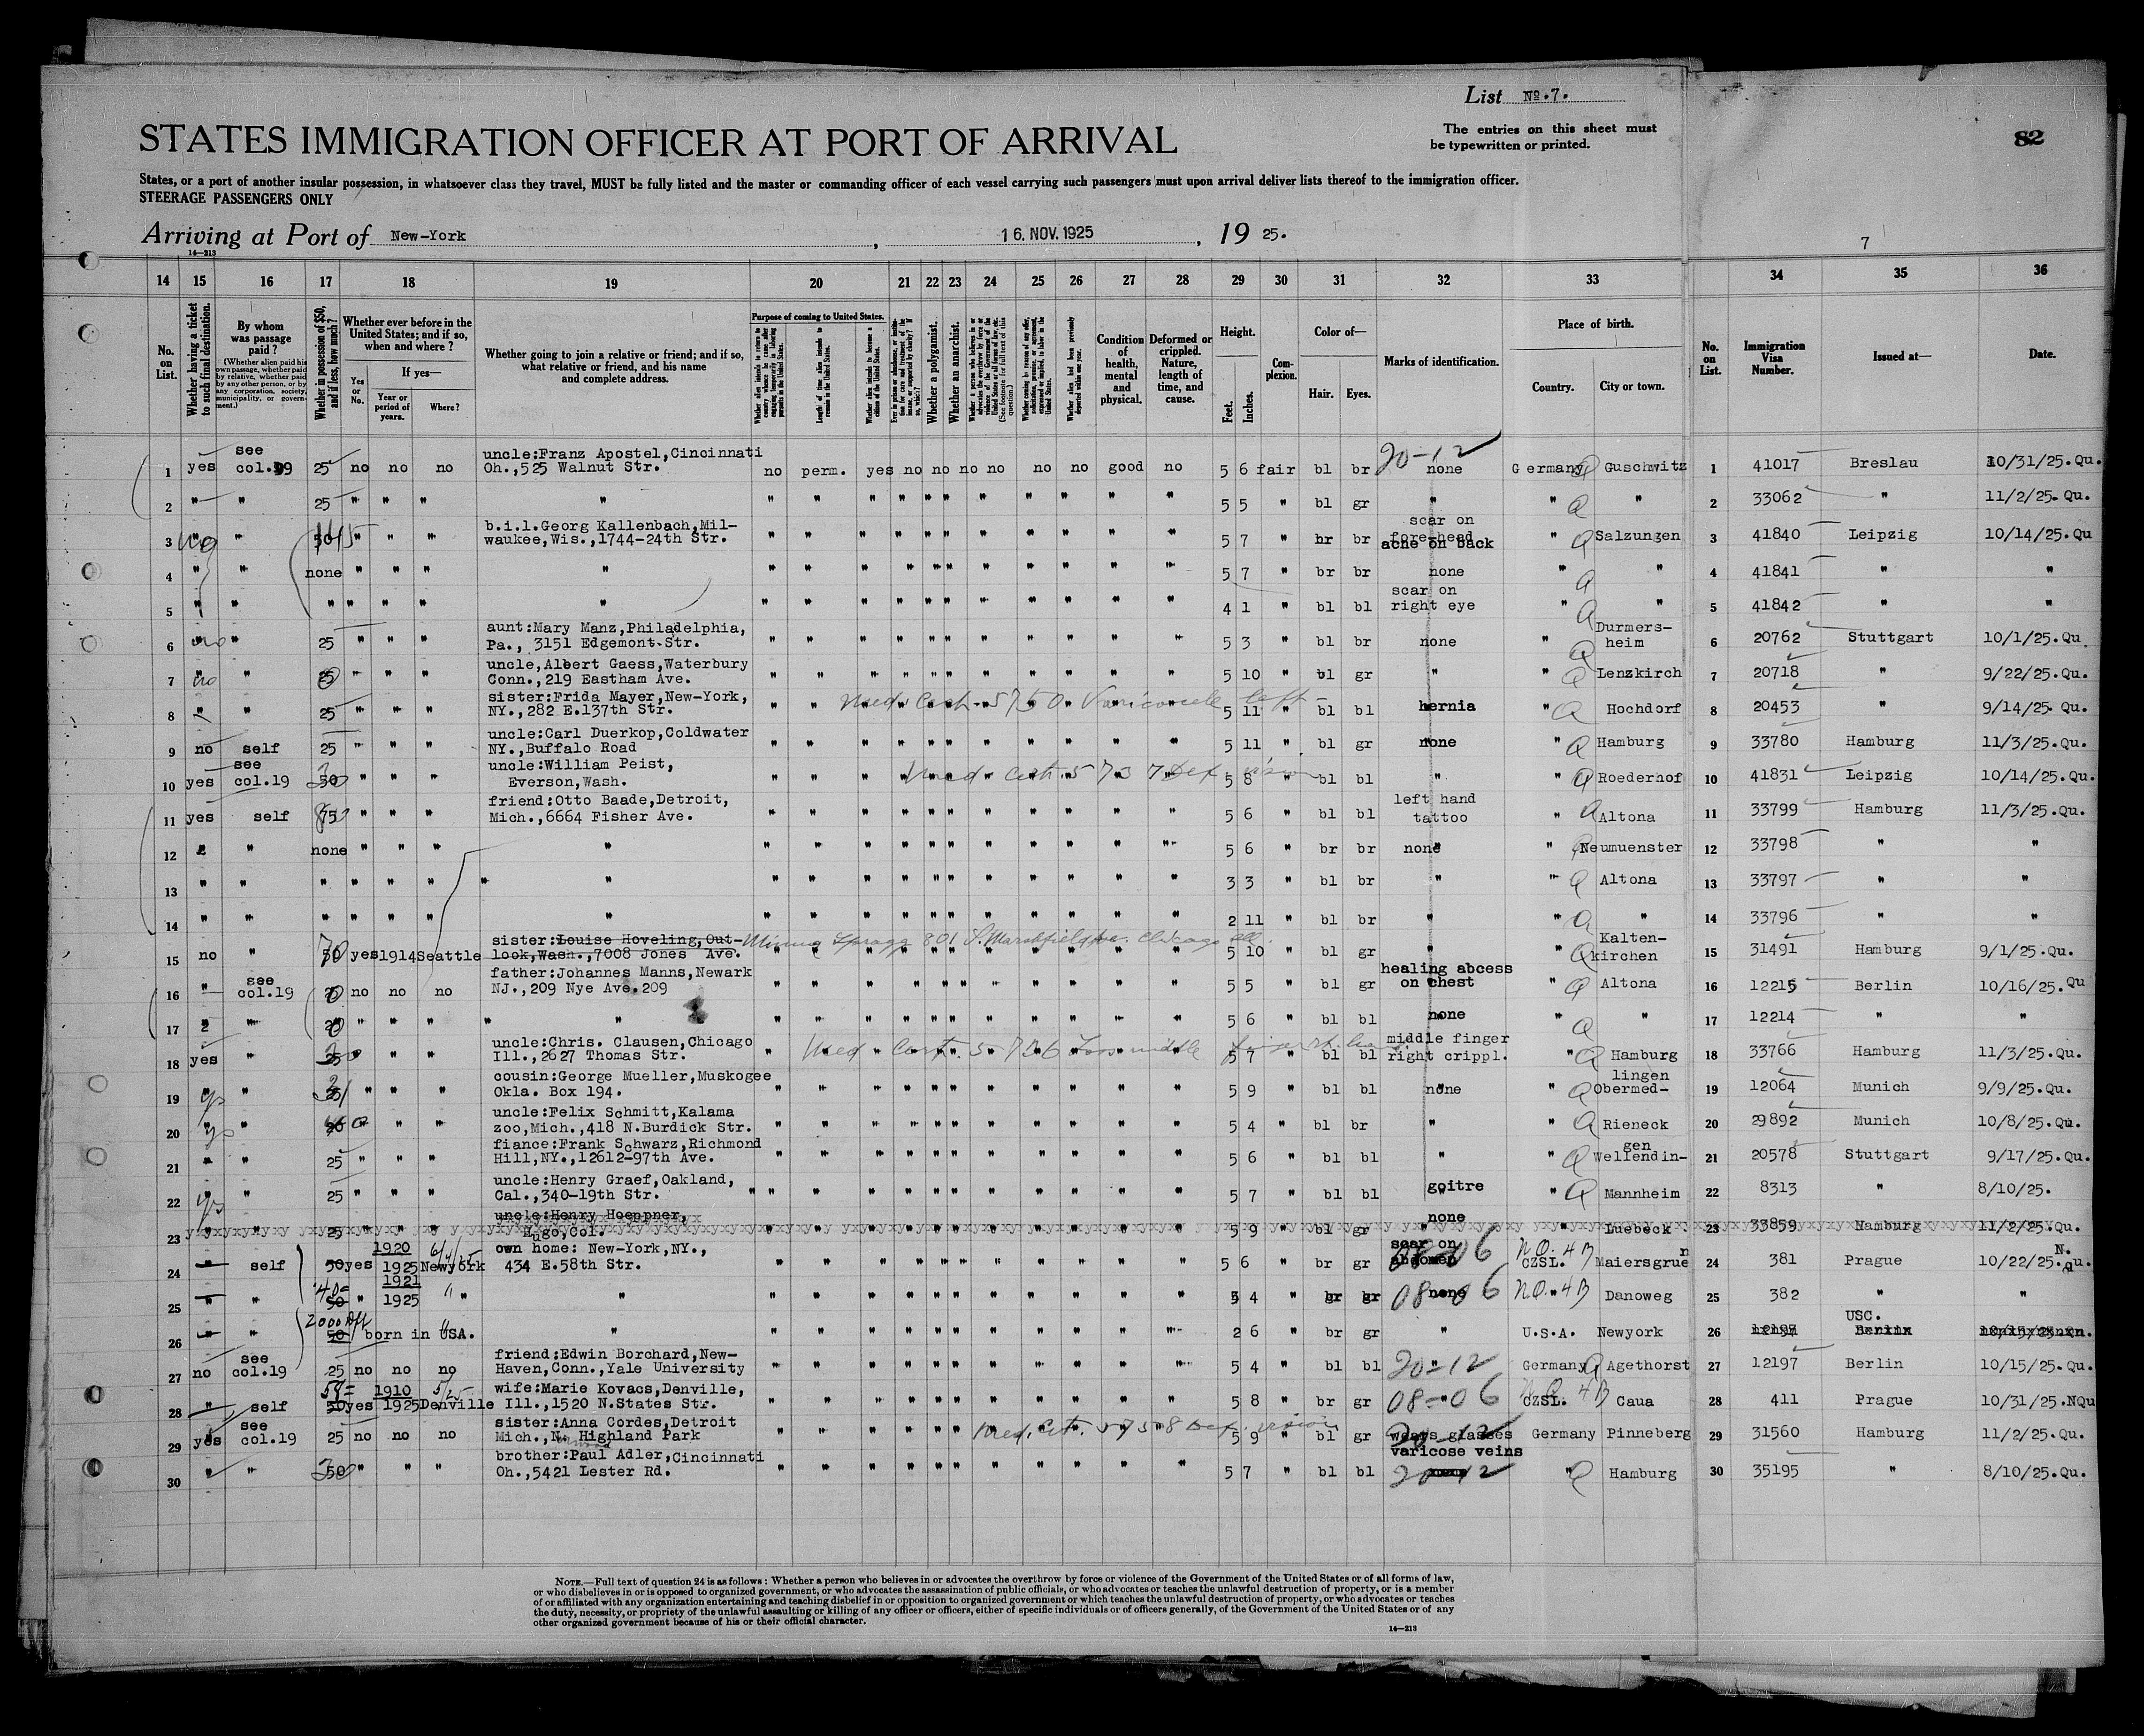 List No. 7.
82
STATES IMMIGRATION OFFICER AT PORT OF ARRIVAL
The entries on this sheet must
be typewritten or printed.
States, or a port of another insular possession, in whatsoever class they travel, MUST be fully listed and the master or commanding officer of each vessel carrying such passengers must upon arrival deliver lists thereof to the immigration officer.
STEERAGE PASSENGERS ONLY
Arriving at Port of New-York, 16. NOV. 1925, 19 25.
14—213
7
14 15 16 17 18 19 20 21 22 23 24 25 26 27 28 29 30 31 32 33 34 35 36
No. on List.
Whether having a ticket to such final destination.
By whom was passage paid?
(Whether alien paid his own passage, whether paid by relative, whether paid by any other person, or by any corporation, society, municipality, or government.)
Whether in possession of $50, and if less, how much?
Whether ever before in the United States; and if so, when and where?
If yes—
Yes or No.
Year or period of years.
Where?
Whether going to join a relative or friend; and if so, what relative or friend, and his name and complete address.
Purpose of coming to United States.
Whether a polygamist.
Whether an anarchist.
Condition of health, mental and physical.
Deformed or crippled. Nature, length of time, and cause.
Height.
Feet. Inches.
Complexion.
Color of—
Hair. Eyes.
Marks of identification.
Place of birth.
Country. City or town.
No. on List.
Immigration Visa Number.
Issued at—
Date.
20-12
1 yes see col.19 25 no no no uncle:Franz Apostel,Cincinnati Oh.,525 Walnut Str. no perm. yes no no no no no no good no 5 6 fair bl br none Germany Guschwitz 1 41017 Breslau 10/31/25.Qu.
2 " " 25 " " " " " " " " " " " " " " " 5 5 " bl gr " " " 2 33062 " 11/2/25.Qu.
3 no " 50 " " " b.i.l.Georg Kallenbach,Milwaukee,Wis.,1744-24th Str. " " " " " " " " " " " 5 7 " br br scar on fore-head acne on back " Salzungen 3 41840 Leipzig 10/14/25.Qu
4 " " none " " " " " " " " " " " " " " " 5 7 " br br none " " 4 41841 " "
5 " " " " " " " " " " " " " " " " " " 4 1 " bl bl scar on right eye " " 5 41842 " "
6 no " 25 " " " aunt:Mary Manz,Philadelphia, Pa., 3151 Edgemont-Str. " " " " " " " " " " " 5 3 " bl br none " Durmersheim 6 20762 Stuttgart 10/1/25.Qu
7 no " 25 " " " uncle,Albert Gaess,Waterbury Conn.,219 Eastham Ave. " " " " " " " " " " " 5 10 " bl gr " " Lenzkirch 7 20718 " 9/22/25.Qu.
8 " 25 " " " sister:Frida Mayer,New-York, NY.,282 E.137th Str. " " Med. Cert. 5750 Varicocele left 5 11 " bl bl hernia " Hochdorf 8 20453 " 9/14/25.Qu.
9 no self 25 " " " uncle:Carl Duerkop,Coldwater NY.,Buffalo Road " " " " " " " " " " " 5 11 " bl gr none " Hamburg 9 33780 Hamburg 11/3/25.Qu.
10 yes see col.19 50 " " " uncle:William Peist, Everson,Wash. " " Med. Cert. 5737 Def. vision 5 8 " bl bl " " Roederhof 10 41831 Leipzig 10/14/25.Qu.
11 yes self 75 " " " friend:Otto Baade,Detroit, Mich.,6664 Fisher Ave. " " " " " " " " " " " 5 6 " bl bl left hand tattoo " Altona 11 33799 Hamburg 11/3/25.Qu.
12 " none " " " " " " " " " " " " " " " " 5 6 " br br none " Neumuenster 12 33798 " "
13 " " " " " " " " " " " " " " " " " " 3 3 " bl br " " Altona 13 33797 " "
14 " " " " " " " " " " " " " " " " " 2 11 " bl br " " " 14 33796 " "
15 no " 50 yes 1914 Seattle sister:Louise Hoveling,Outlook,Wash.,7008 Jones Ave. 801 S. Marshfield Ave. Chicago Ill. 5 10 " bl gr " " Kaltenkirchen 15 31491 Hamburg 9/1/25.Qu.
16 " see col.19 no no no father:Johannes Manns,Newark NJ.,209 Nye Ave.209 " " " " " " " " " " " 5 5 " bl gr healing abcess on chest " Altona 16 12215 Berlin 10/16/25.Qu
17 " " " " " " " " " " " " " " " " " 5 6 " bl bl none " " 17 12214 " "
18 yes " 25 " " " uncle:Chris. Clausen,Chicago Ill.,2627 Thomas Str. " Med. Cert. 5736 Loss middle finger rt. hand 5 7 " bl bl middle finger right crippl. " Hamburg 18 33766 Hamburg 11/3/25.Qu.
19 yes " 25 " " " cousin:George Mueller,Muskogee Okla. Box 194. " " " " " " " " " " " 5 9 " bl bl none " Obermedlingen 19 12064 Munich 9/9/25.Qu.
20 yes " " " uncle:Felix Schmitt,Kalama zoo,Mich.,418 N.Burdick Str. " " " " " " " " " " " 5 4 " bl br " " Rieneck 20 29892 Munich 10/8/25.Qu.
21 " " 25 " " " fiance:Frank Schwarz,Richmond Hill,NY.,12612-97th Ave. " " " " " " " " " " " 5 6 " bl bl " " Wellendingen 21 20578 Stuttgart 9/17/25.Qu.
22 yes " 25 " " " uncle:Henry Graef,Oakland, Cal.,340-19th Str. " " " " " " " " " " " 5 7 " bl bl goitre " Mannheim 22 8313 " 8/10/25.
23 " " 25 " " " uncle:Henry Hoeppner, Hugo,Col. " " " " " " " " " " " 5 9 " bl gr none " Luebeck 23 33859 Hamburg 11/2/25.Qu.
24 self 50 yes 1920 1925 6/4/25 Newyork own home: New-York,NY., 434 E.58th Str. " " " " " " " " " " " 5 6 " br gr scar on abdomen 08-06 N.Q. 4B CZSL. Maiersgruen 24 381 Prague 10/22/25. N.Qu.
25 " " 50 " 1921 1925 " " " " " " " " " " " " " 5 4 " gr gr none 08-06 N.Q. 4B Danoweg 25 382 " "
26 " " 50 born in USA. " " " " " " " " " " " " 2 6 " br gr " U.S.A. Newyork 26 12197 USC. Berlin
27 no see col.19 25 no no no friend:Edwin Borchard,New-Haven,Conn.,Yale University " " " " " " " " " " " 5 4 " bl bl 20-12 Germany Agethorst 27 12197 Berlin 10/15/25.Qu.
28 " self 50 yes 1910 1925 5/25 Denville wife:Marie Kovacs,Denville, Ill.,1520 N.States Str. " " " " " " " " " " " 5 8 " br gr 08-06 N.Q. 4B CZSL. Caua 28 411 Prague 10/31/25.NQu
29 yes see col.19 25 no no no sister:Anna Cordes,Detroit Mich.,N. Highland Park " " Med. Cert. 5758 Def. vision 5 9 " bl gr wears glasses Germany Pinneberg 29 31560 Hamburg 11/2/25.Qu.
30 " " 50 " " " brother:Paul Adler,Cincinnati Oh.,5421 Lester Rd. " " " " " " " " " " " 5 7 " bl bl varicose veins 20-12 " Hamburg 30 35195 " 8/10/25.Qu.
NOTE.—Full text of question 24 is as follows: Whether a person who believes in or advocates the overthrow by force or violence of the Government of the United States or of all forms of law,
or who disbelieves in or is opposed to organized government, or who advocates the assassination of public officials, or who advocates or teaches the unlawful destruction of property, or is a member
of or affiliated with any organization entertaining and teaching disbelief in or opposition to organized government or which teaches the unlawful destruction of property, or who advocates or teaches
the duty, necessity, or propriety of the unlawful assaulting or killing of any officer or officers, either of specific individuals or of officers generally, of the Government of the United States or of any
other organized government because of his or their official character.
14—213